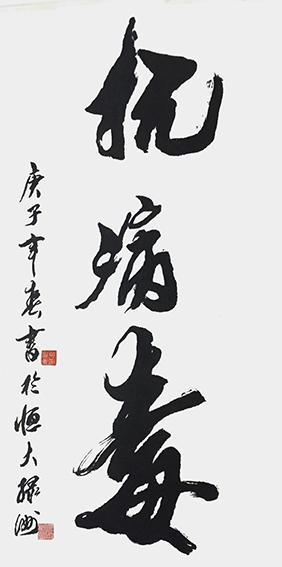 抗病毒
庚子年春書於恒大綠洲